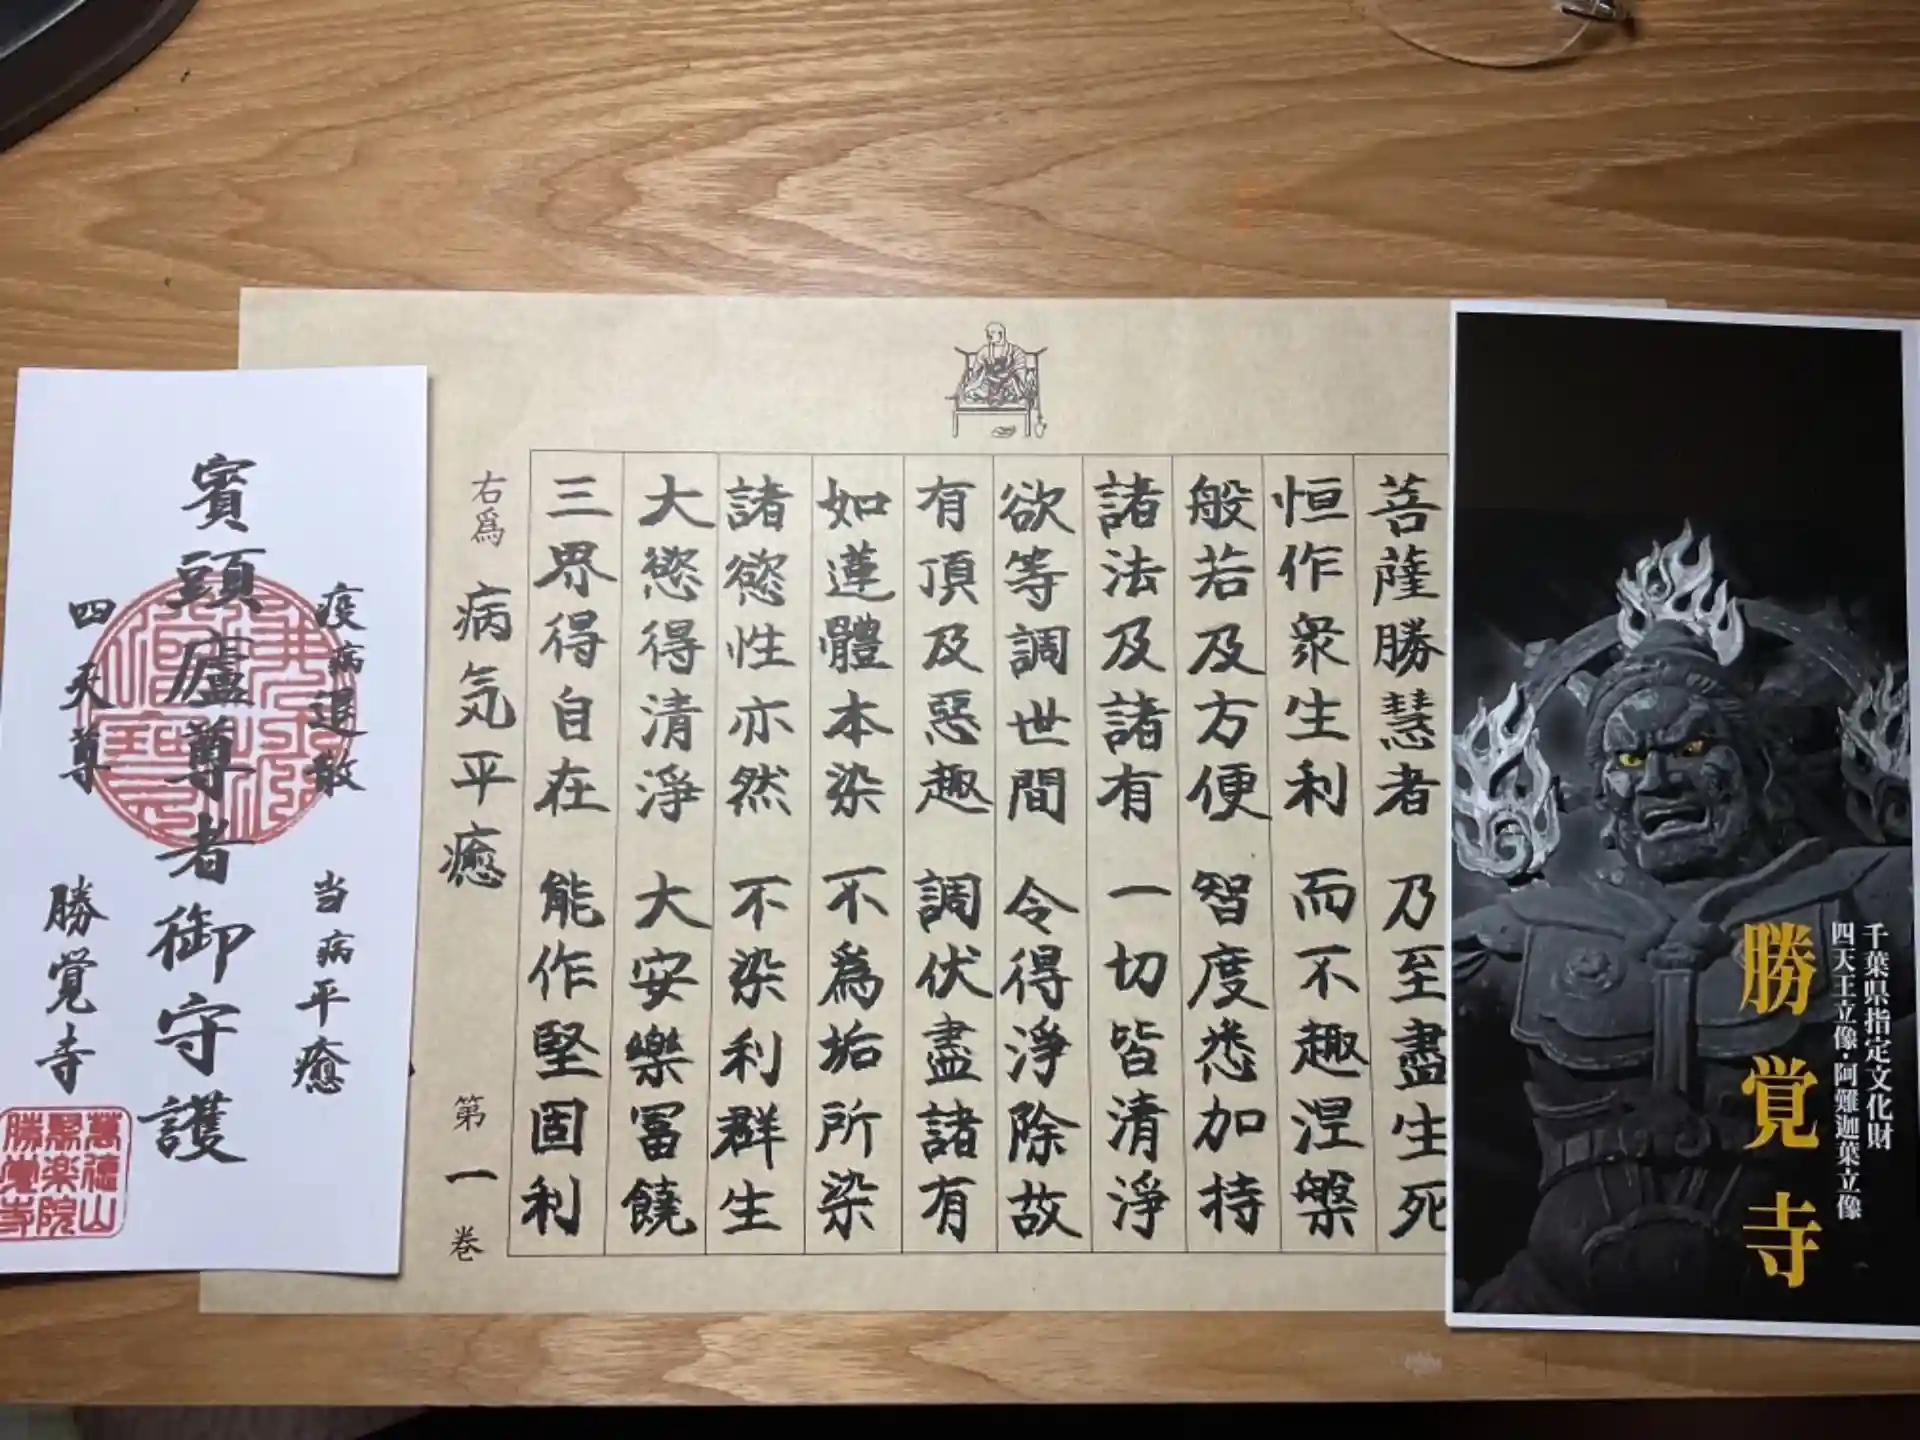 千葉県指定文化財
四天王立像・阿難迦葉立像
勝覚寺
菩薩勝慧者 乃至盡生死
恒作衆生利 而不趣涅槃
般若及方便 智度悉加持
諸法及諸有 一切皆清淨
欲等調世間 令得淨除故
有頂及惡趣 調伏盡諸有
如蓮體本染 不為垢所染
諸慾性亦然 不染利群生
大慾得清淨 大安樂冨饒
三界得自在 能作堅固利
右爲 病気平癒 第一巻
疫病退散 当病平癒
賓頭廬尊者御守護
四天尊 勝覚寺
萬徳山
聚楽院
勝覚寺